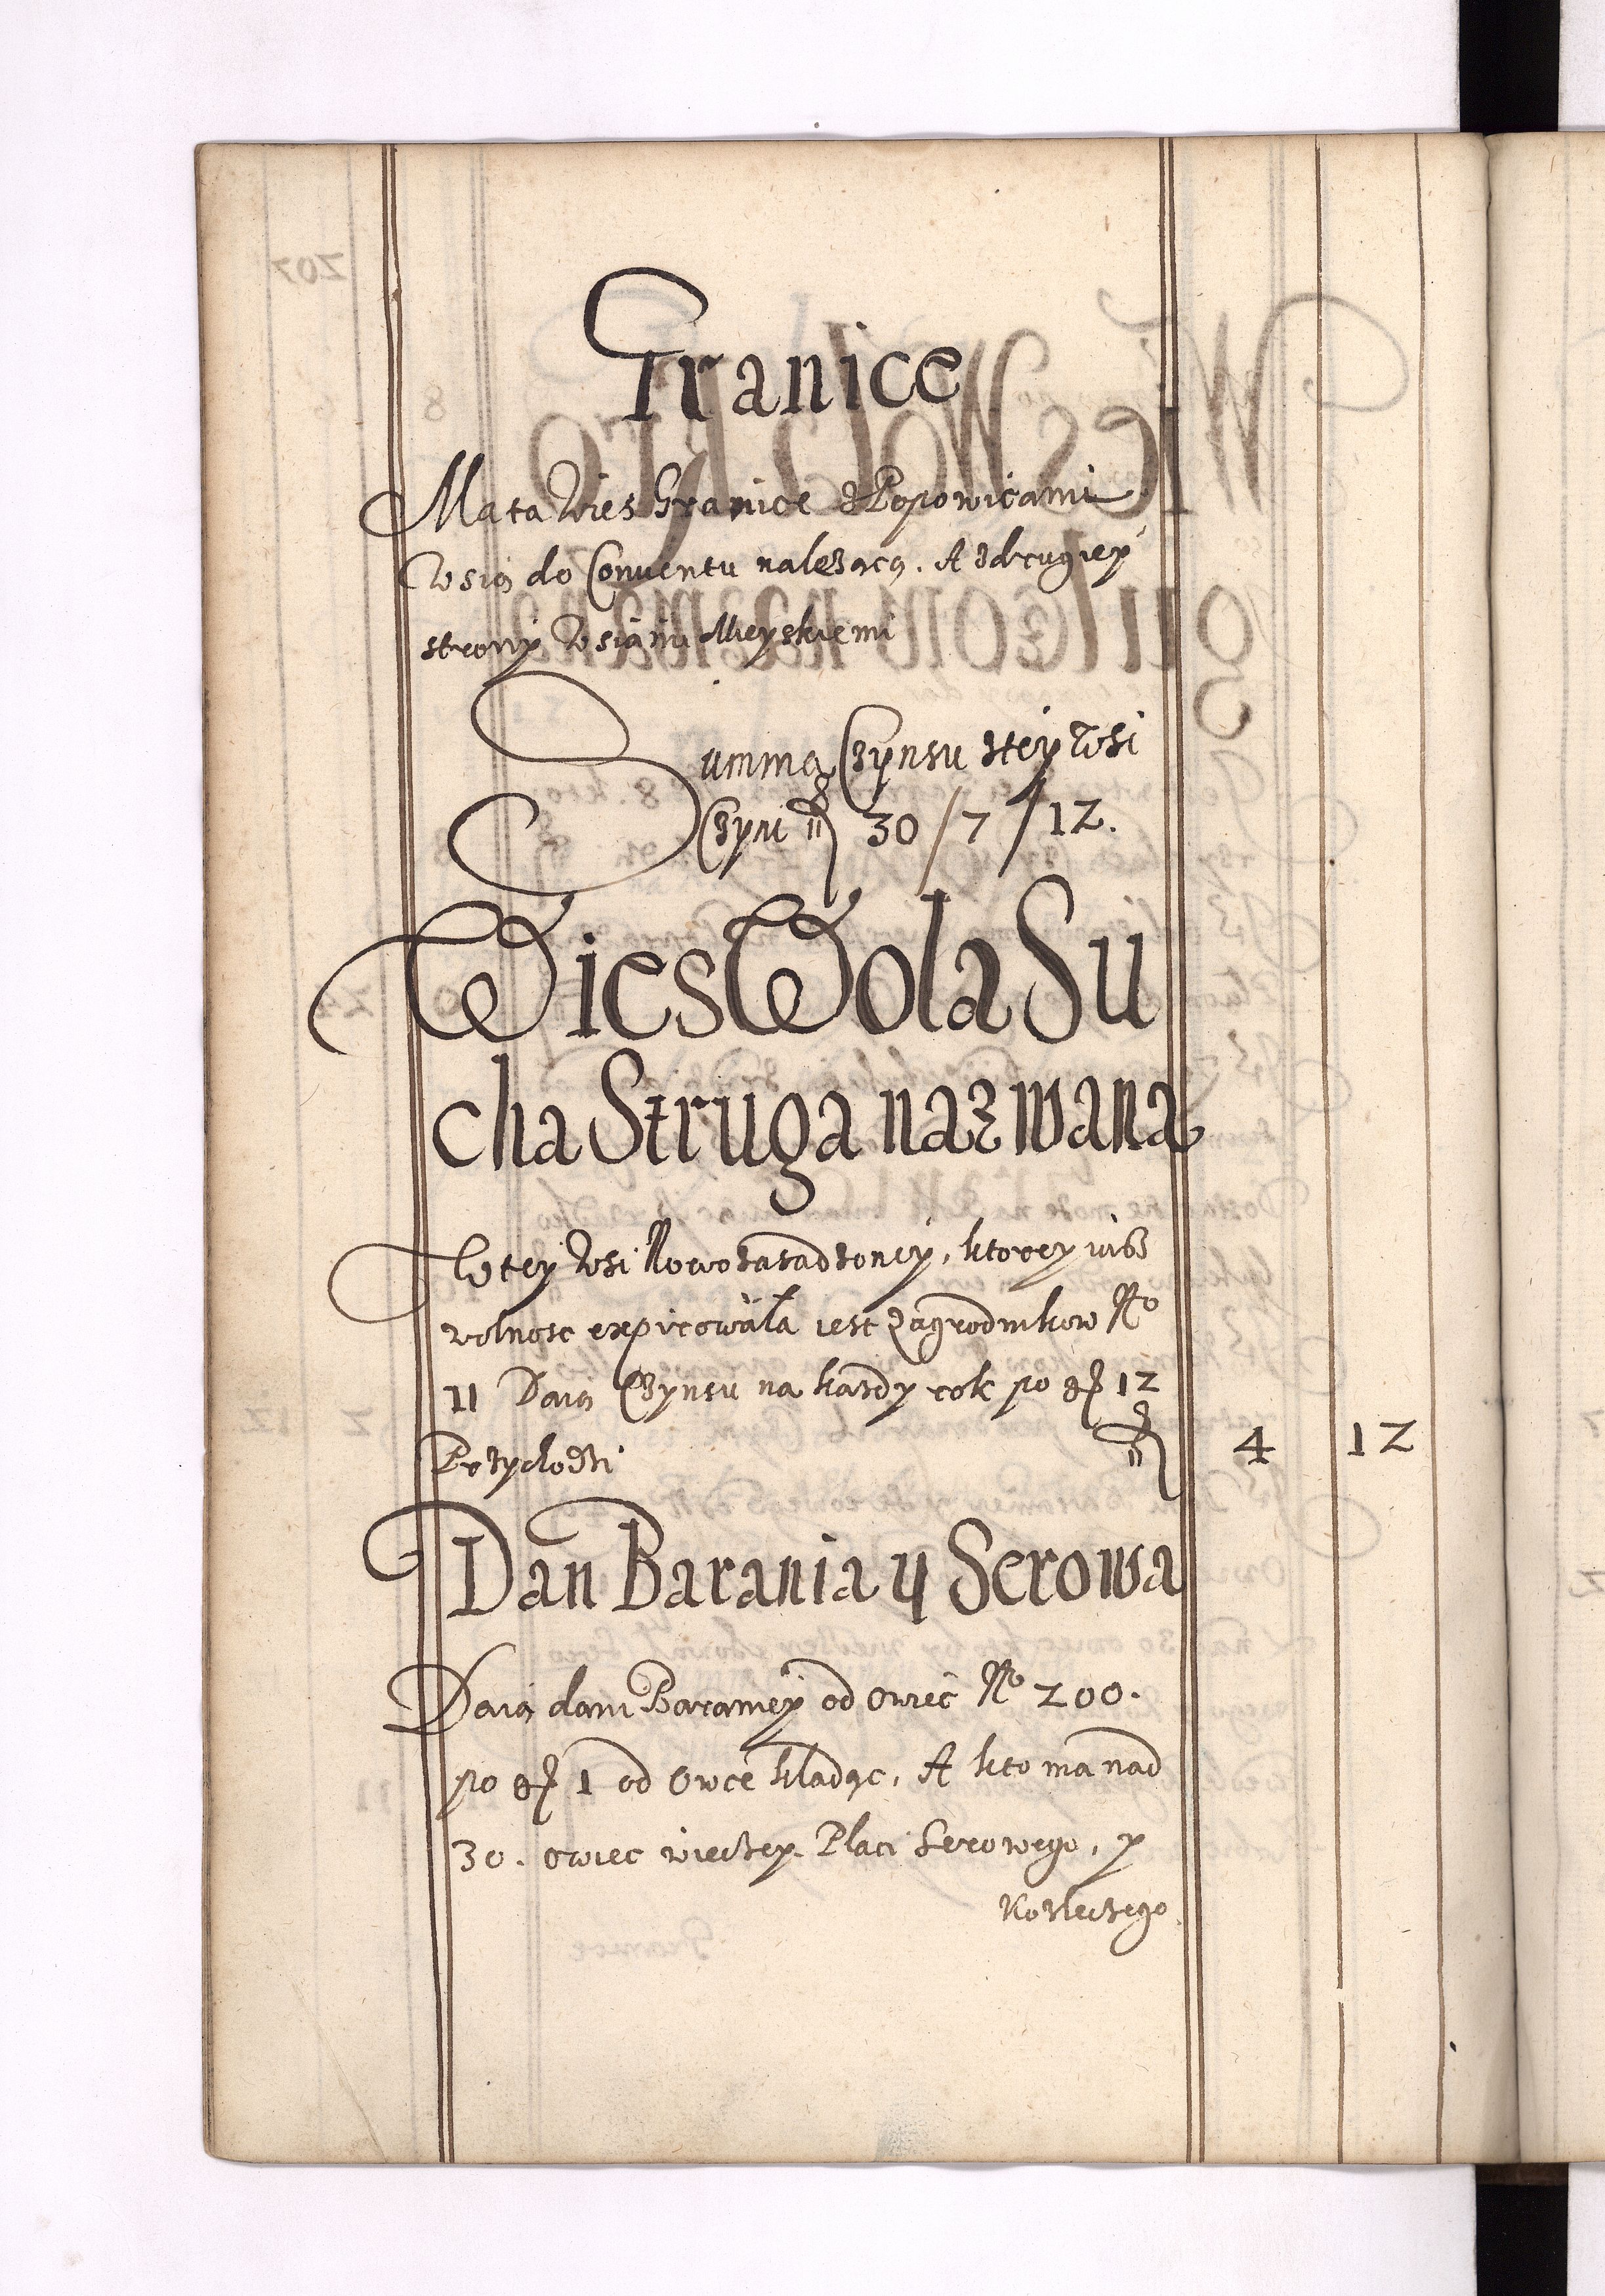 Granice
Ma ta Wies Granice z Popowicami
Wsią do Conuentu nalezącą. A zdrugiey
strony Wsiami Mieyskiemi
Summa Czynsu ztey Wsi
Czyni 30/7/12.
Wies Wola Su
cha Struga nazwana
W tey Wsi Nowozasadzoney, ktorey iusz
wolnosc expirowała iest Zagrodnikow No
11 Daią Czynsu na kazdy rok po gr 12
Przychodzi 4 12
Dan Barania y Serowa
Daią dani Baraniey od owiec No 200.
po gr 1 od Owce kładąc, A kto ma nad
30. owiec wieczey Placi Serowego, y
Kozłeczego